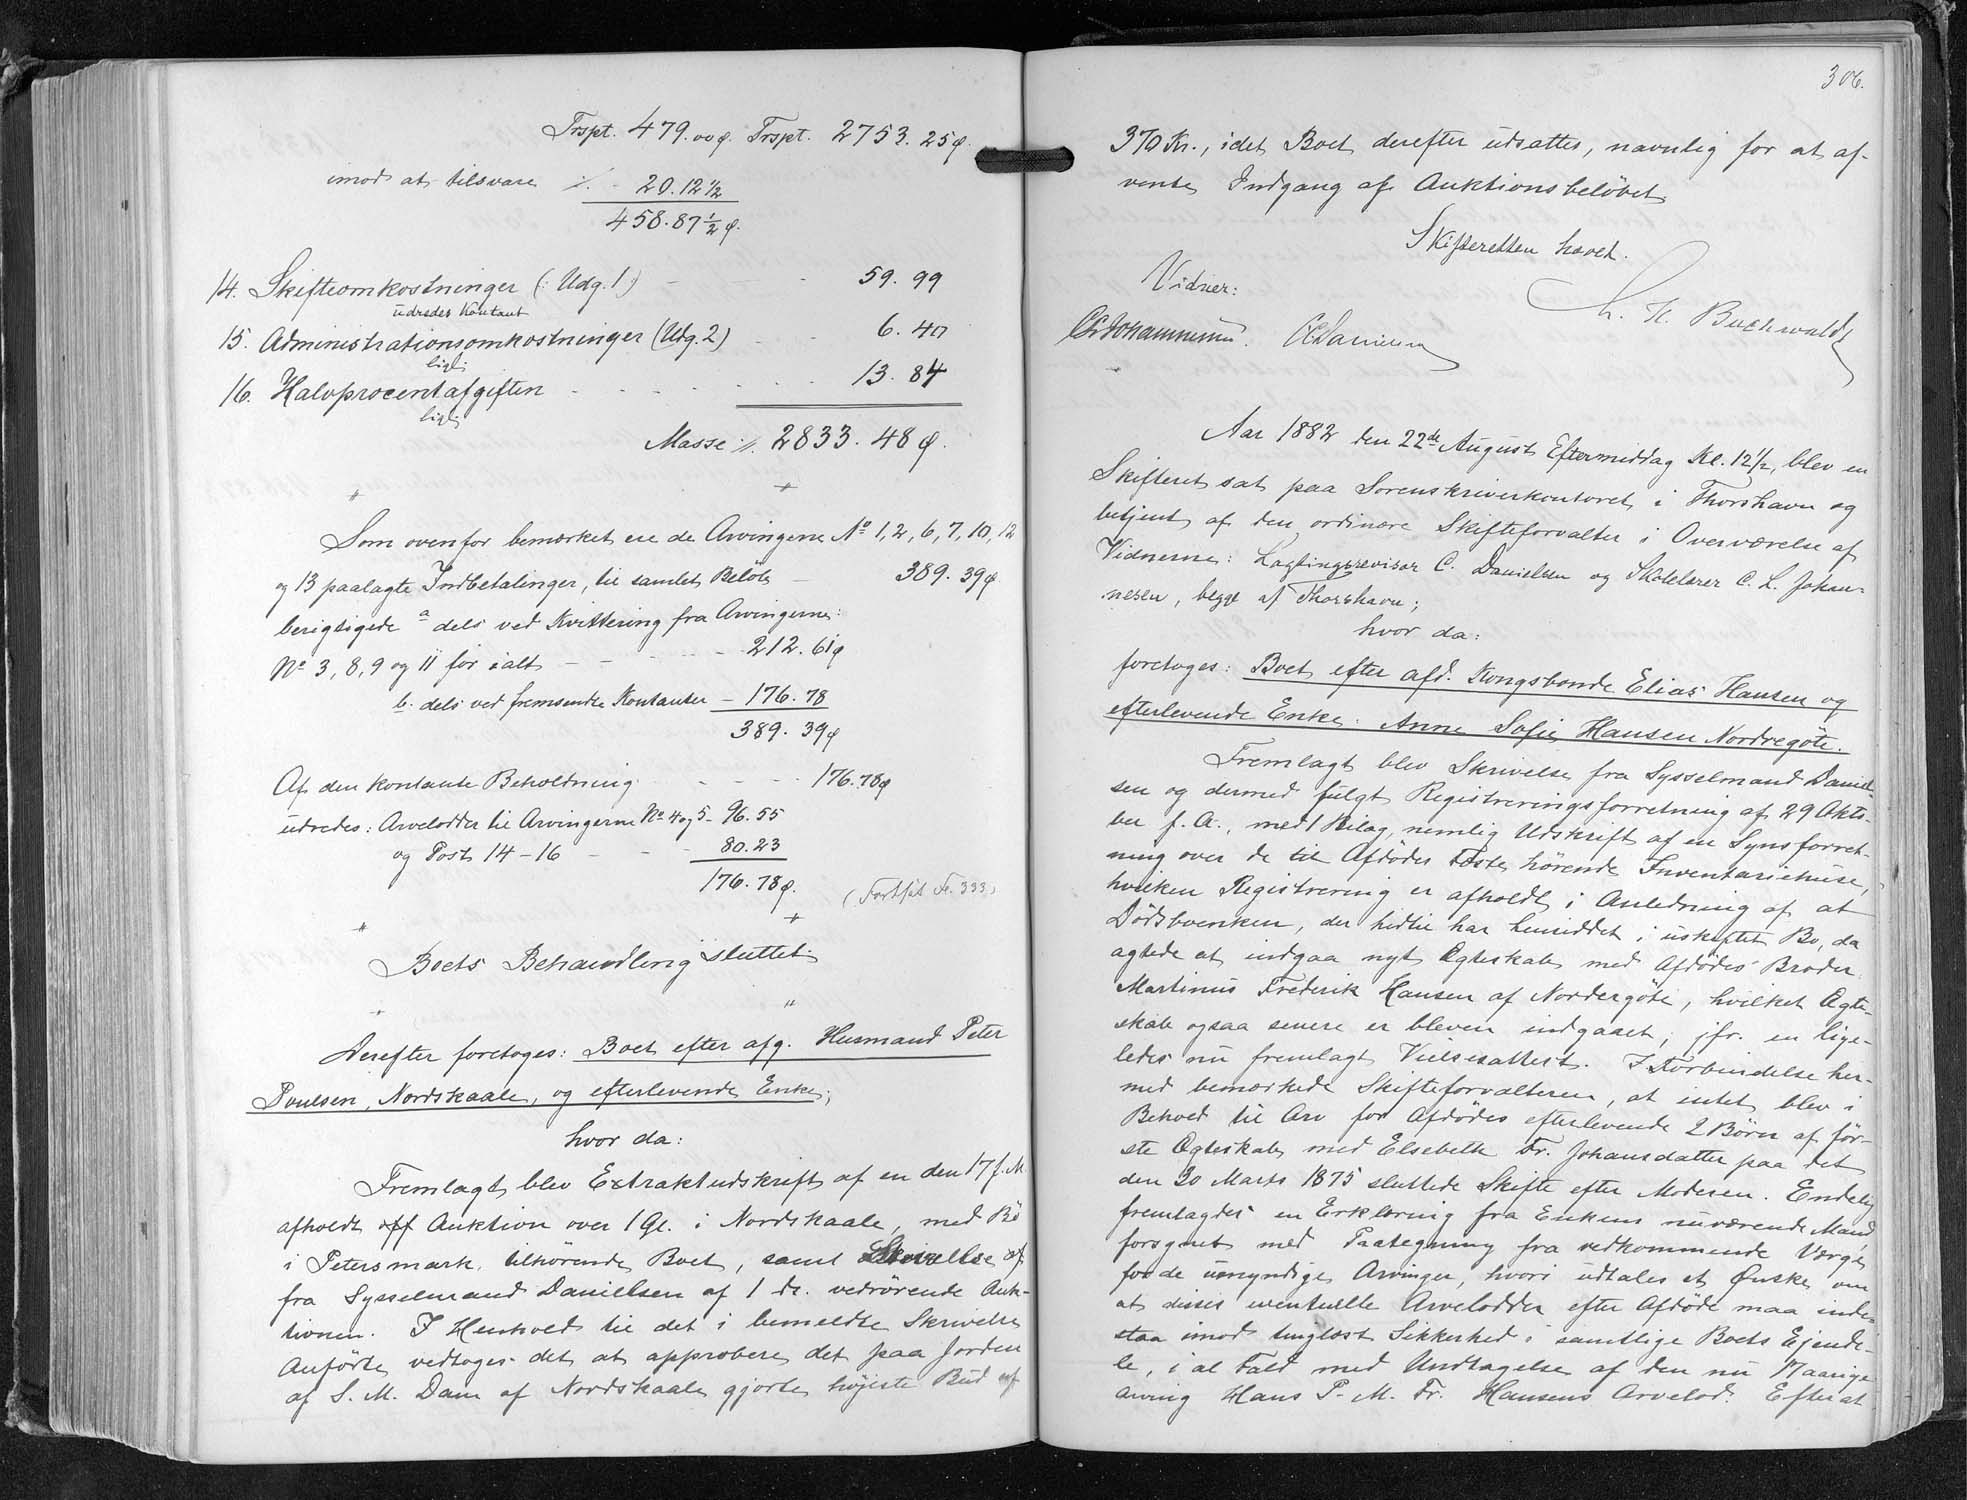 Trspt. 479.00 ø. Trspt. 2753. 25 ø.
imod at tilsvare ./. - 20. 12 1/2
458. 87 1/2 ø.
14. Skifteomkostninger (: Udg. 1 :) - - 59. 99
udredes kontant
15. Administrationsomkostninger (Udg. 2) - - 6. 40
ligl.
16. Halvprocentafgiften - - - - - - 13. 84
ligl.
Masse ./. 2833. 48 ø.
Som ovenfor bemærket ere de Arvingerne No 1, 2, 6, 7, 10, 12
og 13 paalagte Indbetalinger, til samlet Beløb - 389. 39 ø
berigtigede a dels ved Kvittering fra Arvingerne:
No 3, 8, 9 og 11 for ialt - - - - 212. 61 ø
b. dels ved fremsendte Kontanter - 176. 78
389. 39 ø
Af den kontante Beholdning - - - - 176. 78 ø
udredes: Arvelodder til Arvingerne No 4 og 5 - 96. 55
og Post 14-16 - - - 80. 23
176. 78 ø.
(Fortsat Fo. 333)
Boets Behandling sluttet.
Derefter foretoges: Boet efter afg. Husmand Peter
Poulsen, Nordskaale, og efterlevende Enke;
hvor da:
Fremlagt blev Extraktudskrift af en den 17 f. M.
afholdt Auktion over 1 Gl. i Nordskaale, med Bø
i Petersmark, tilhørende Boet, samt Skrivelse af
fra Sysselmand Danielsen af 1 ds. vedrørende Auk-
tionen. I Henhold til det i bemeldte Skrivelse
Anførte vedtoges det at approbere det paa Jorden
af S. M. Dam af Nordskaale gjorte højeste Bud af
306.
370 Kr., idet Boet derefter udsattes, navnlig for at af-
vente Indgang af Auktionsbeløbet.
Skifteretten hævet.
Vidner:
H. Buchwaldt
C. L. Johannesen. C. Danielsen
Aar 1882 den 22de August Eftermiddag Kl. 12 1/2, blev en
Skifteret sat paa Sorenskriverkontoret i Thorshavn og
betjent af den ordinære Skifteforvalter i Overværelse af
Vidnerne: Lagtingsrevisor C. Danielsen og Skolelærer C. L. Johan-
nesen, begge af Thorshavn;
hvor da:
foretoges: Boet efter afd. Kongsbonde Elias Hansen og
efterlevende Enke: Anne Sofie Hansen Nordregøte.
Fremlagt blev Skrivelse fra Sysselmand Daniel-
sen og dermed fulgt Registreringsforretning af 29 Okto-
ber f. A., med 1 Bilag, nemlig Udskrift af en Synsforret-
ning over de til Afdødes Fæste hørende Inventariehuse,
hvilken Registrering er afholdt i Anledning af at
Dødsboenken, der hidtil har hensiddet i uskiftet Bo, da
agtede at indgaa nyt Ægteskab med Afdødes Broder
Martinus Frederik Hansen af Nordregøte, hvilket Ægte-
skab ogsaa senere er bleven indgaaet, jfr. en lige-
ledes nu fremlagt Vielsesattest. I Forbindelse her-
med bemærkede Skifteforvalteren, at intet blev i
Behold til Arv for Afdødes efterlevende 2 Børn af før-
ste Ægteskab med Elsebeth Fr. Johansdatter paa det
den 30 Marts 1875 sluttede Skifte efter Moderen. Endelig
fremlagdes en Erklæring fra Enkens nuværende Mand,
forsynet med Paategning fra vedkommende Værge
for de umyndige Arvinger, hvori udtales et Ønske om
at disses eventuelle Arvelodder efter Afdøde maa inde-
staa imod tinglæst Sikkerhed i samtlige Boets Ejende-
le, i al Fald med Undtagelse af den nu 17aarige
Arving Hans P. M. Fr. Hansens Arvelod. Efterat